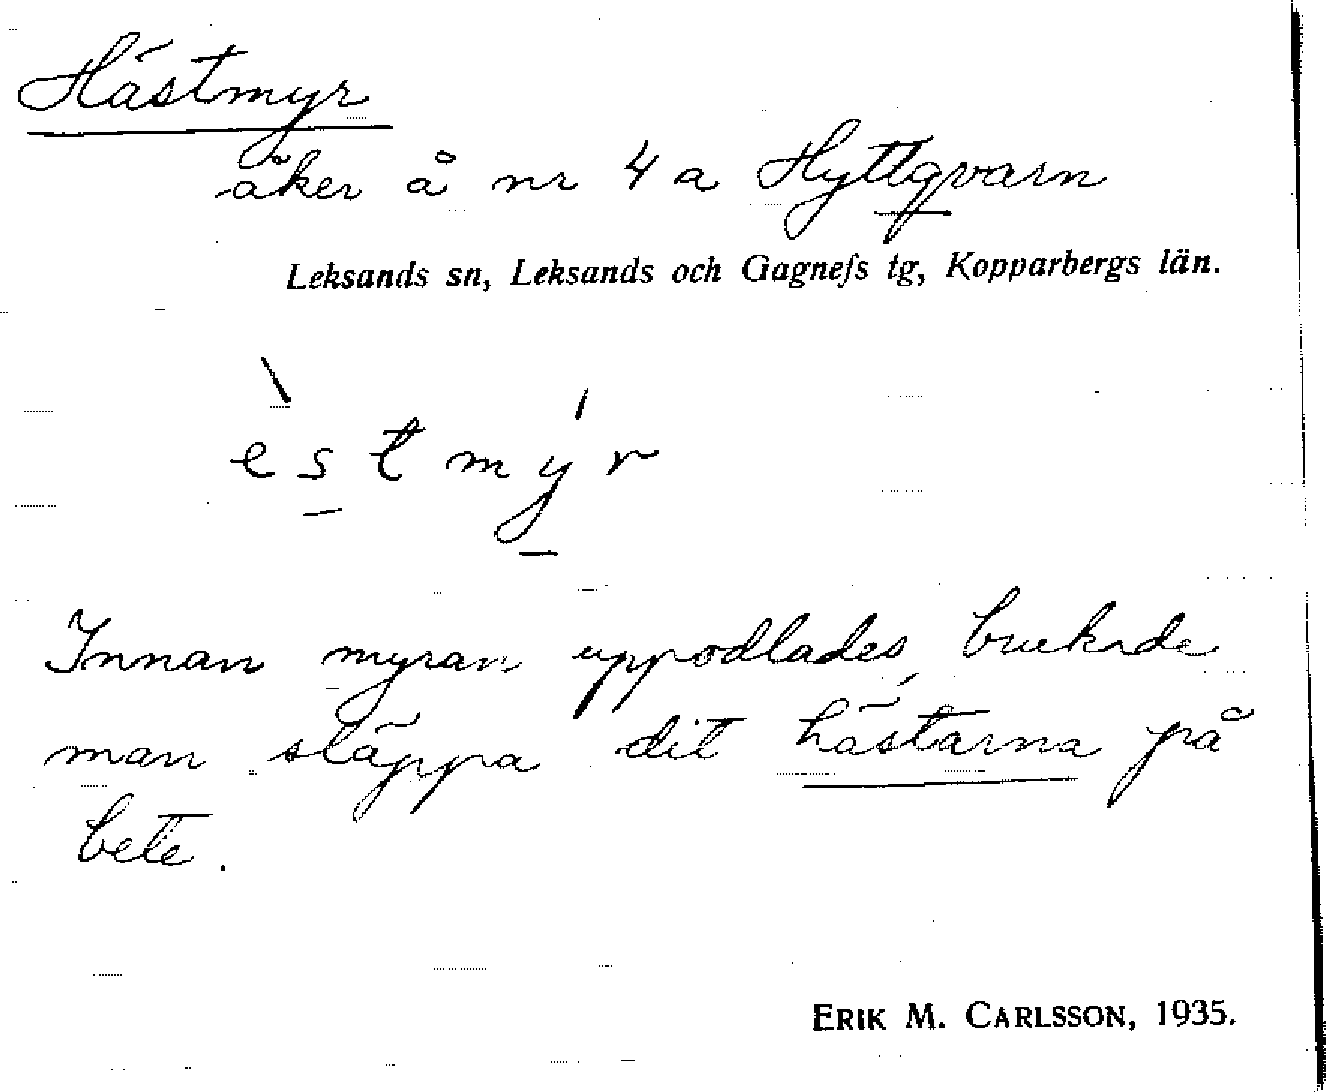 Hästmyr
åker å nr 4a Hyttqvarn
Leksands sn, Leksands och Gagnefs tg, Kopparbergs län.
èstmýr
Innan myran uppodlades, brukade
man släppa dit hästarna på
bete.
ERIK M. CARLSSON, 1935.